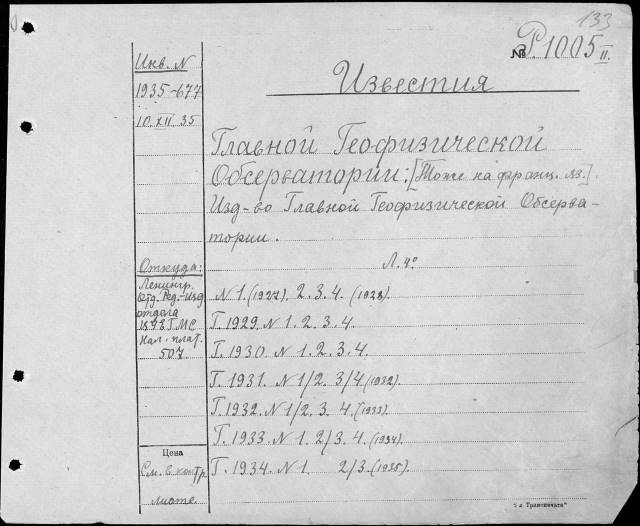 133
№ Р.1005 II.
Инв. N
1935-677
10.XII.35
Известия
Главной Геофизической
Обсерватории: [Тоже на франц. яз.]
Изд-во Главной Геофизической Обсерва-
тории.
Л. 4°
Откуда:
Ленингр.
отд. Ред.-Изд
отдела
ГМС
Нал. плат.
507
N 1. (1927). 2. 3. 4. (1928).
Г. 1929. N 1. 2. 3. 4.
Г. 1930. N 1. 2. 3. 4.
Г. 1931. N 1/2. 3/4. (1932).
Г. 1932. N 1/2. 3. 4. (1933).
Г. 1933. N 1. 2/3. 4. (1934).
Г. 1934. N 1. 2/3. (1935).
Цена
См. в контр.
листе.
"Транспечати"